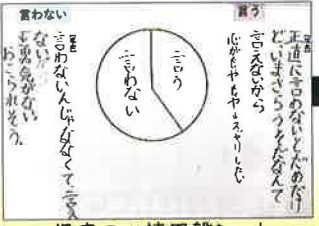 言う
正直に言わないとだめだけ
ど、いまさらうそだなんて
言えないから
心がもやもやスッキリしたい
言う
言わない
言わない
言わないんじゃなくて、言え
ない!勇気がない。
おこられそう。